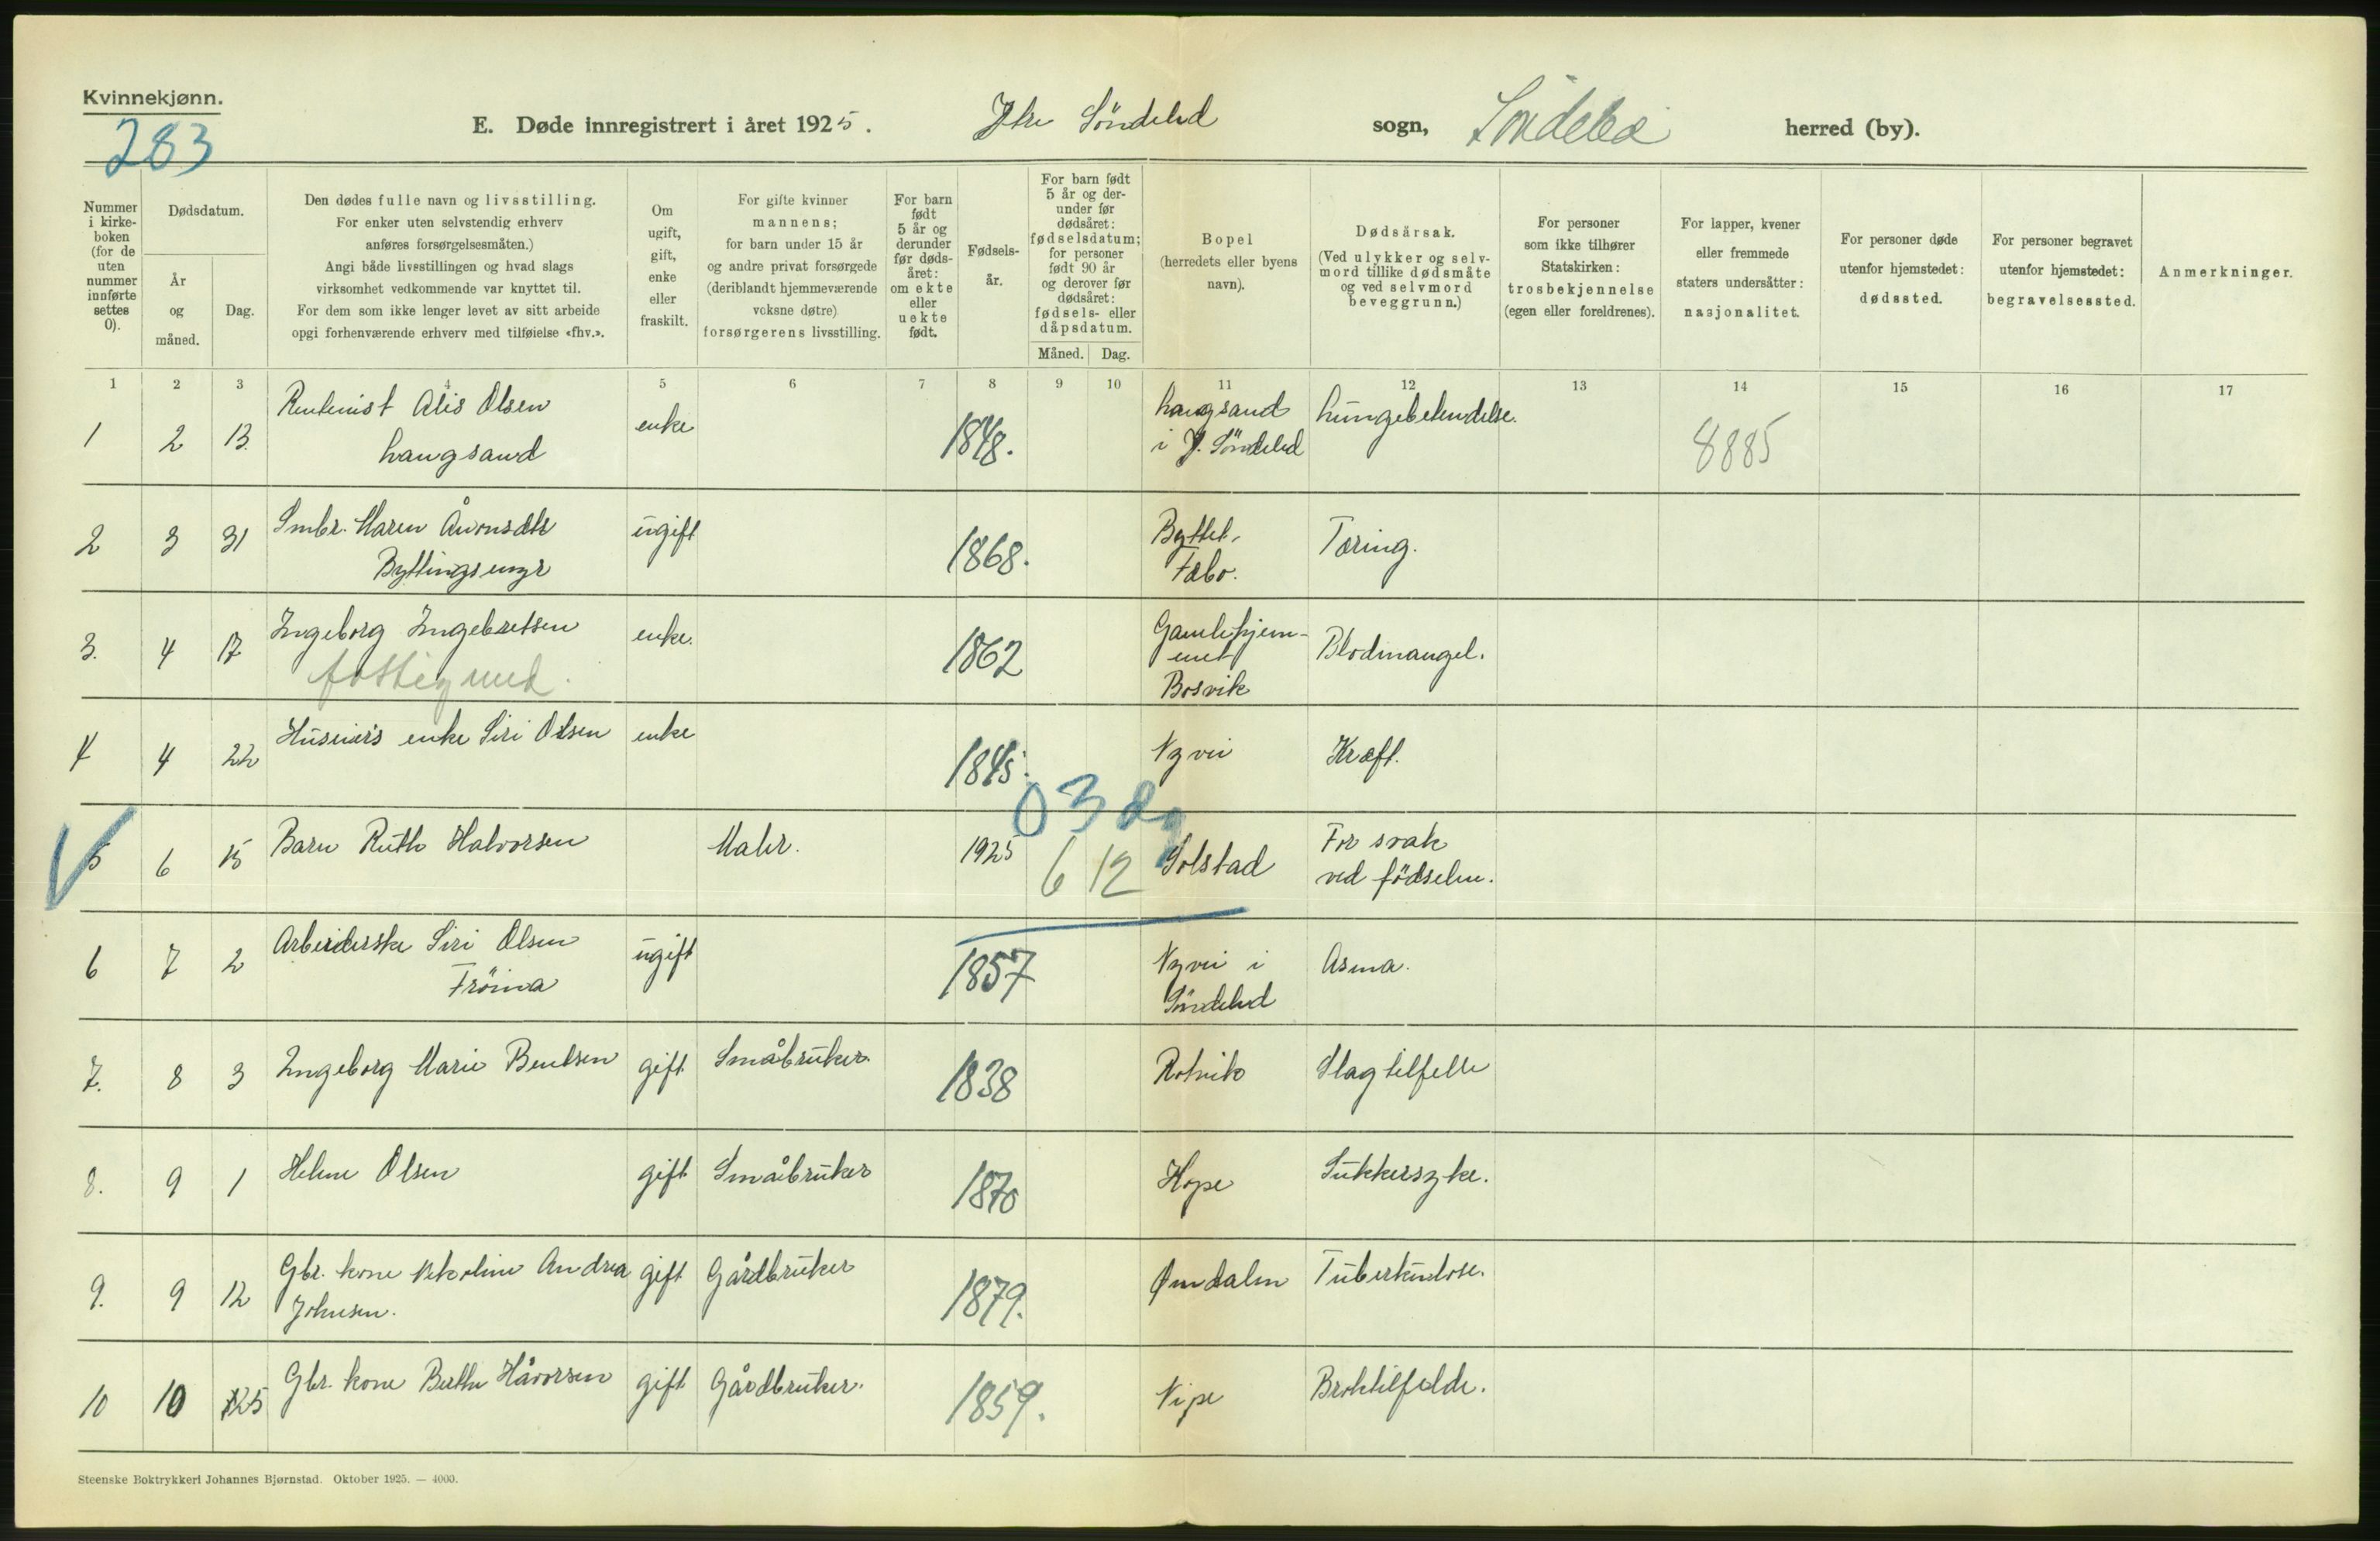 Kvinnekjønn.
283
E. Døde innregistrert i året 1925. Ytre Søndeled sogn, Søndeled herred (by).
Nummer i kirkeboken (for de uten nummer innførte settes 0).
Dødsdatum.
År og måned.
Dag.
Den dødes fulle navn og livsstilling.
For enker uten selvstendig erhverv
anføres forsørgelsesmåten.)
Angi både livsstillingen og hvad slags
virksomhet vedkommende var knyttet til.
For dem som ikke lenger levet av sitt arbeide
opgi forhenværende erhverv med tilføielse «fhv.».
Om ugift, gift, enke eller fraskilt.
For gifte kvinner
mannens;
for barn under 15 år
og andre privat forsørgede
(deriblandt hjemmeværende
voksne døtre)
forsørgerens livsstilling.
For barn født 5 år og derunder før dødsåret: om ekte eller uekte født.
Fødselsår.
For barn født 5 år og derunder før dødsåret: fødselsdatum; for personer født 90 år og derover før dødsåret: fødsels- eller dåpsdatum.
Måned. Dag.
Bopel
(herredets eller byens
navn).
Dødsårsak.
(Ved ulykker og selv-
mord tillike dødsmåte
og ved selvmord
beveggrunn.)
For personer
som ikke tilhører
Statskirken:
trosbekjennelse
(egen eller foreldrenes).
For lapper, kvener
eller fremmede
staters undersåtter:
nasjonalitet.
For personer døde
utenfor hjemstedet:
dødssted.
For personer begravet
utenfor hjemstedet:
begravelsessted.
Anmerkninger.
1 2 3 4 5 6 7 8 9 10 11 12 13 14 15 16 17
1 2 13. Rentenist Alis Olsen enke 1848. Haugsand Lungebetendelse. 8885
Haugsand i Y. Søndeled
2 3 31 Smbr. Maren ugift 1868. Tæring.
3. 4 17 Ingeborg Ingebretsen enke. 1862 Gamlehjem-
met
Bosvik Blodmangel.
4 4 22 Huseiers enke Siri Olsen enke 1845. Nyvei Kræft.
03 dg
5 6 15 Barn Ruth Halvorsen Matr. 1925 6 12 Solstad For svak
ved fødselen.
6 7 2 Arbeiderske Siri Olsen ugift 1857 Nyvei i Asma.
Frøina Søndeled
7. 8 3 Ingeborg Marie Bentsen gift Småbruker. 1838 Rotvik Slagtilfelle
8. 9 1 Helene Olsen gift Småbruker 1870 Hope Sukkersyke.
9. 9 12 Gbr. kone Nikoline Andrea gift Gårdbruker 1879. Omdalen Tuberkulose.
Johnsen.
10 10 25 Gbr. kone Berthe Håvorsen gift Gårdbruker. 1859. Nipe Broktilfelde.
Steenske Boktrykkeri Johannes Bjørnstad. Oktober 1925. — 4000.